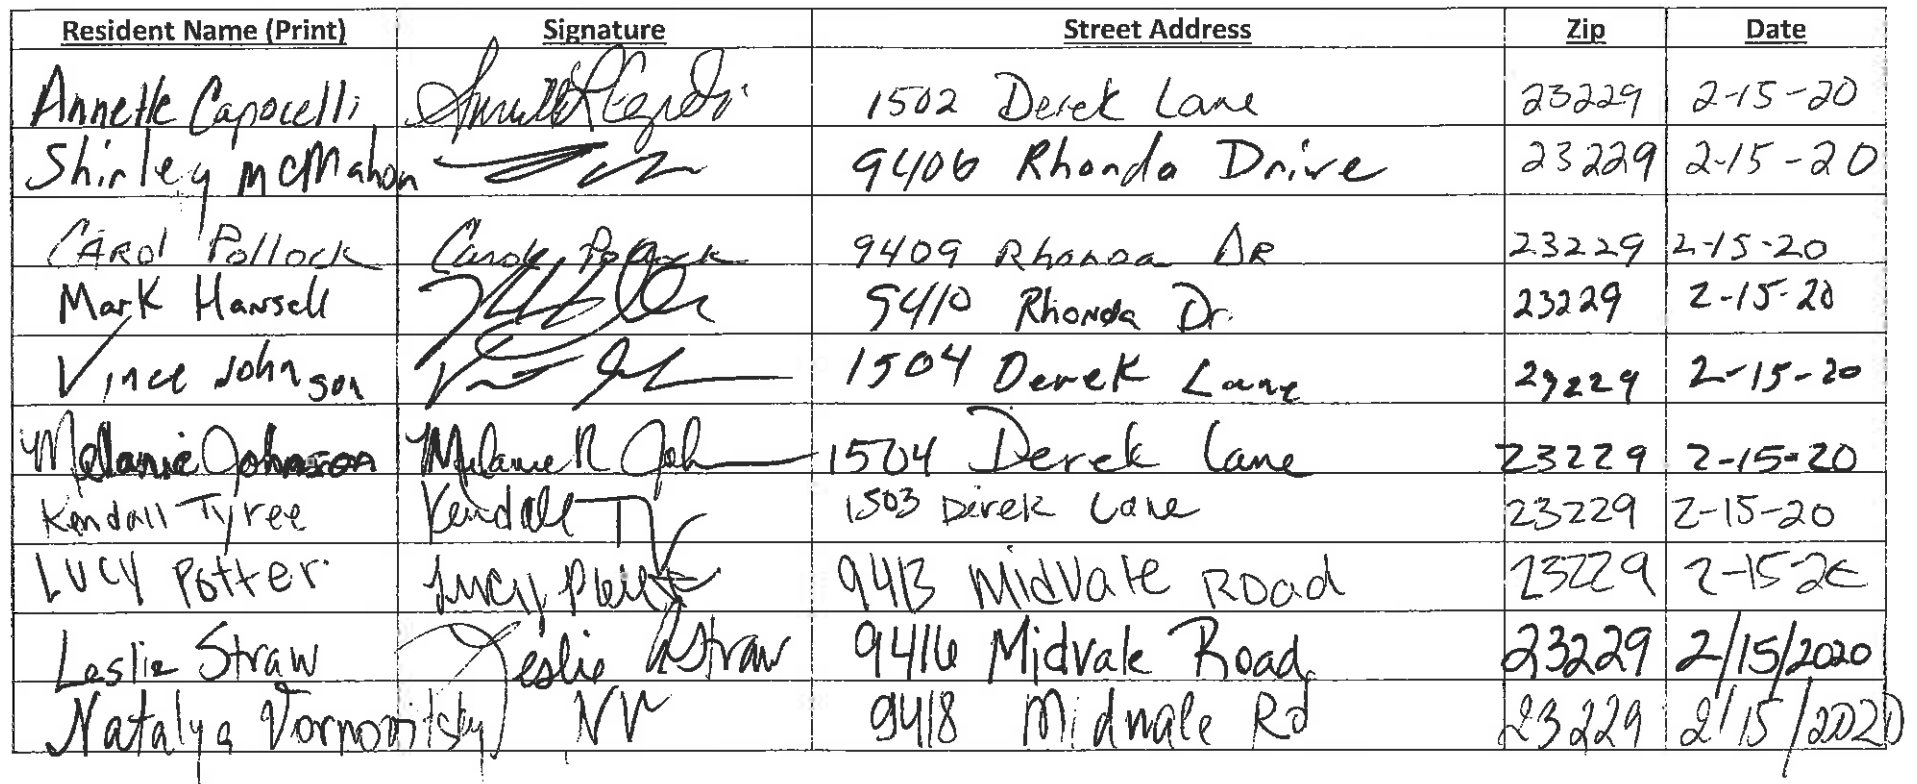 Resident Name (Print) Signature Street Address Zip Date
Annette Capocelli 1502 Derek Lane 23229 2-15-20
Shirley McMahon 9406 Rhonda Drive 23229 2-15-20
CAROl Pollock Carol Pollock 9409 Rhonda DR 23229 2-15-20
Mark Hansell 9410 Rhonda Dr. 23229 2-15-20
Vince Johnson 1504 Derek Lane 23229 2-15-20
Mellanie Johnson Melanie R Joh 1504 Derek Lane 23229 2-15-20
Kendall Tyree Kendall T 1503 Derek Lane 23229 2-15-20
LUCY Potter Lucy 9413 Midvale Road 23229 2-15-20
Leslie Straw Leslie A Straw 9416 Midvale Road 23229 2/15/2020
Natalya NV 9418 Midvale Rd 23229 2/15/2020